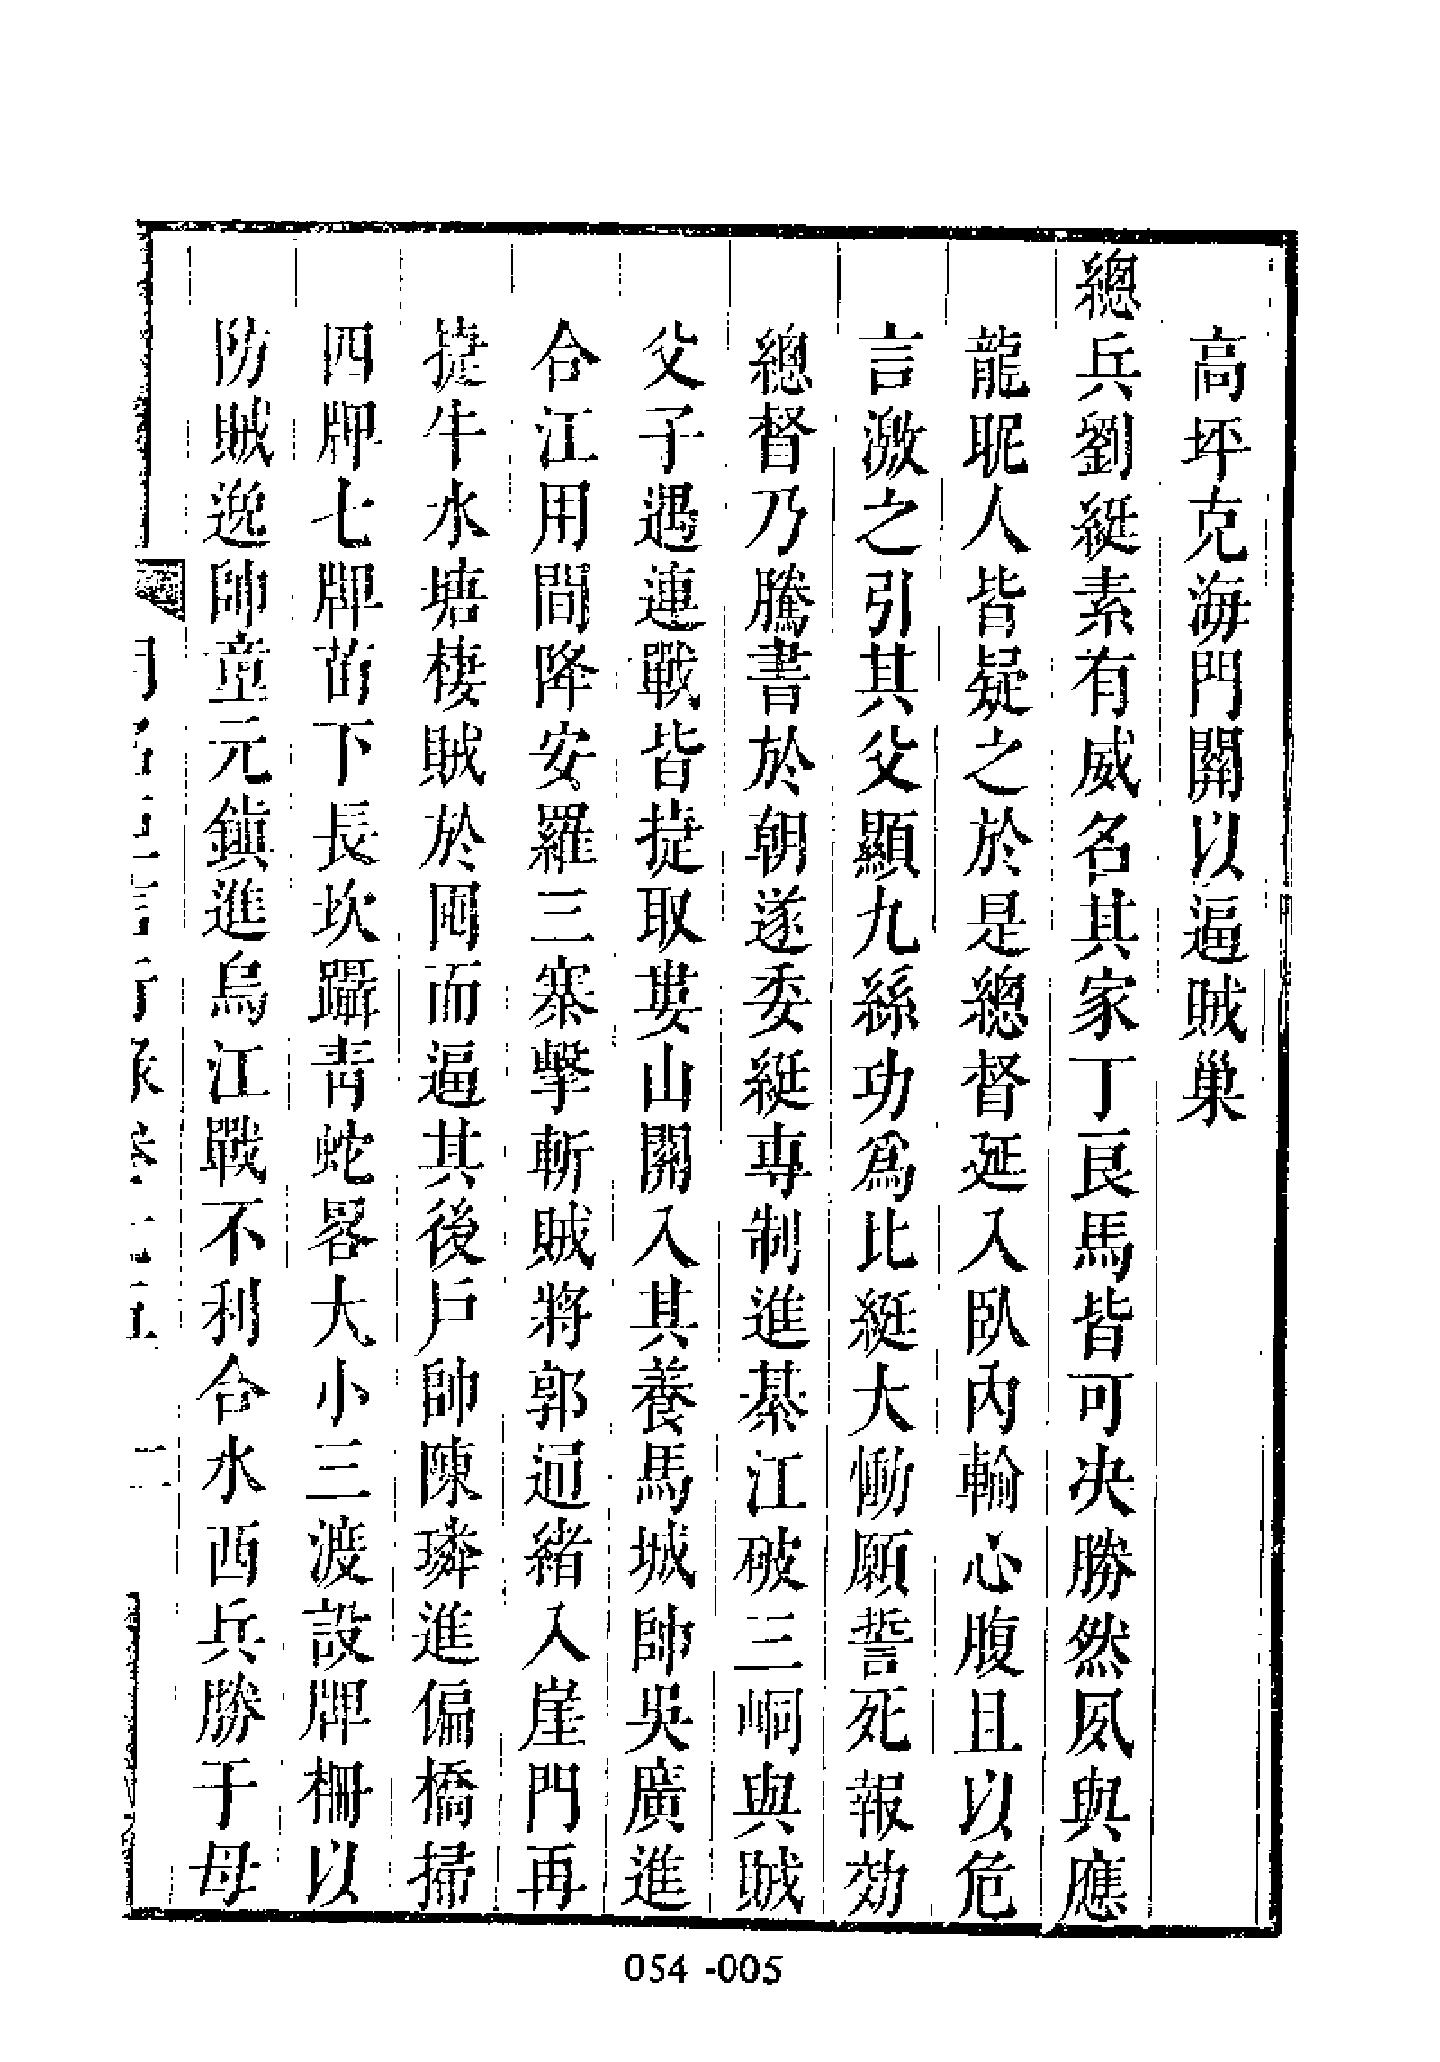 高坪克海門關以逼賊巢
總兵劉綎素有威名其家丁良馬皆可决勝然夙與應
龍昵人皆疑之於是總督延入臥內輸心腹且以危
言激之引其父顯九絲功爲比綎大慟願誓死報効
總督乃騰書於朝遂委綎專制進綦江破三峒與賊
父子遇連戰皆捷取婁山關入其養馬城帥吳廣進
合江用間降安羅三寨擊斬賊將郭通緒入崖門再
捷牛水塘棲賊於囤而逼其後戶帥陳璘進偏橋掃
四牌七牌苗下長坎躡青蛇畧大小三渡設牌柵以
防賊逸帥童元鎭進烏江戰不利合水西兵勝于母
054-005